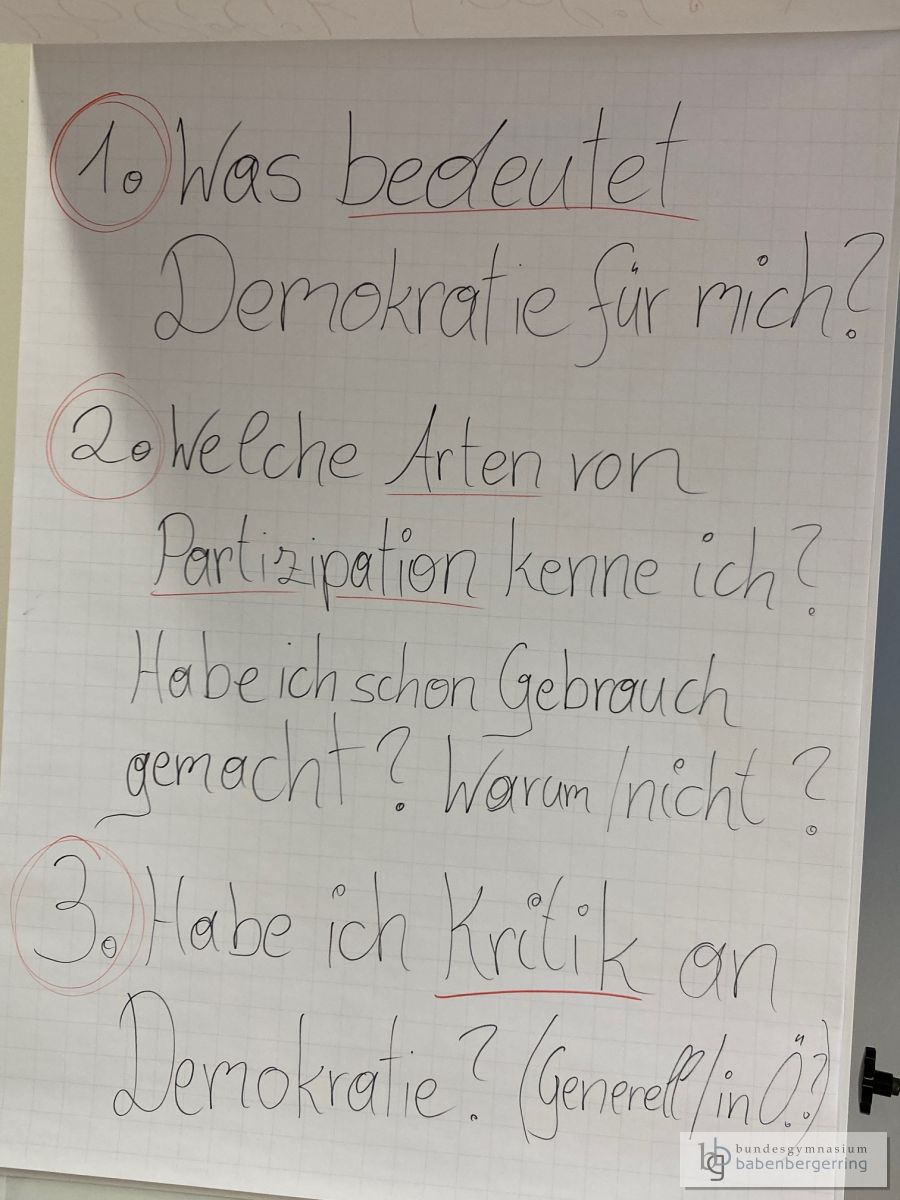 1. Was bedeutet
Demokratie für mich?
2. Welche Arten von
Partizipation kenne ich?
Habe ich schon Gebrauch
gemacht? Warum/nicht?
3. Habe ich Kritik an
Demokratie? (Generell/in Ö.?)
bg bundesgymnasium
babenbergerring